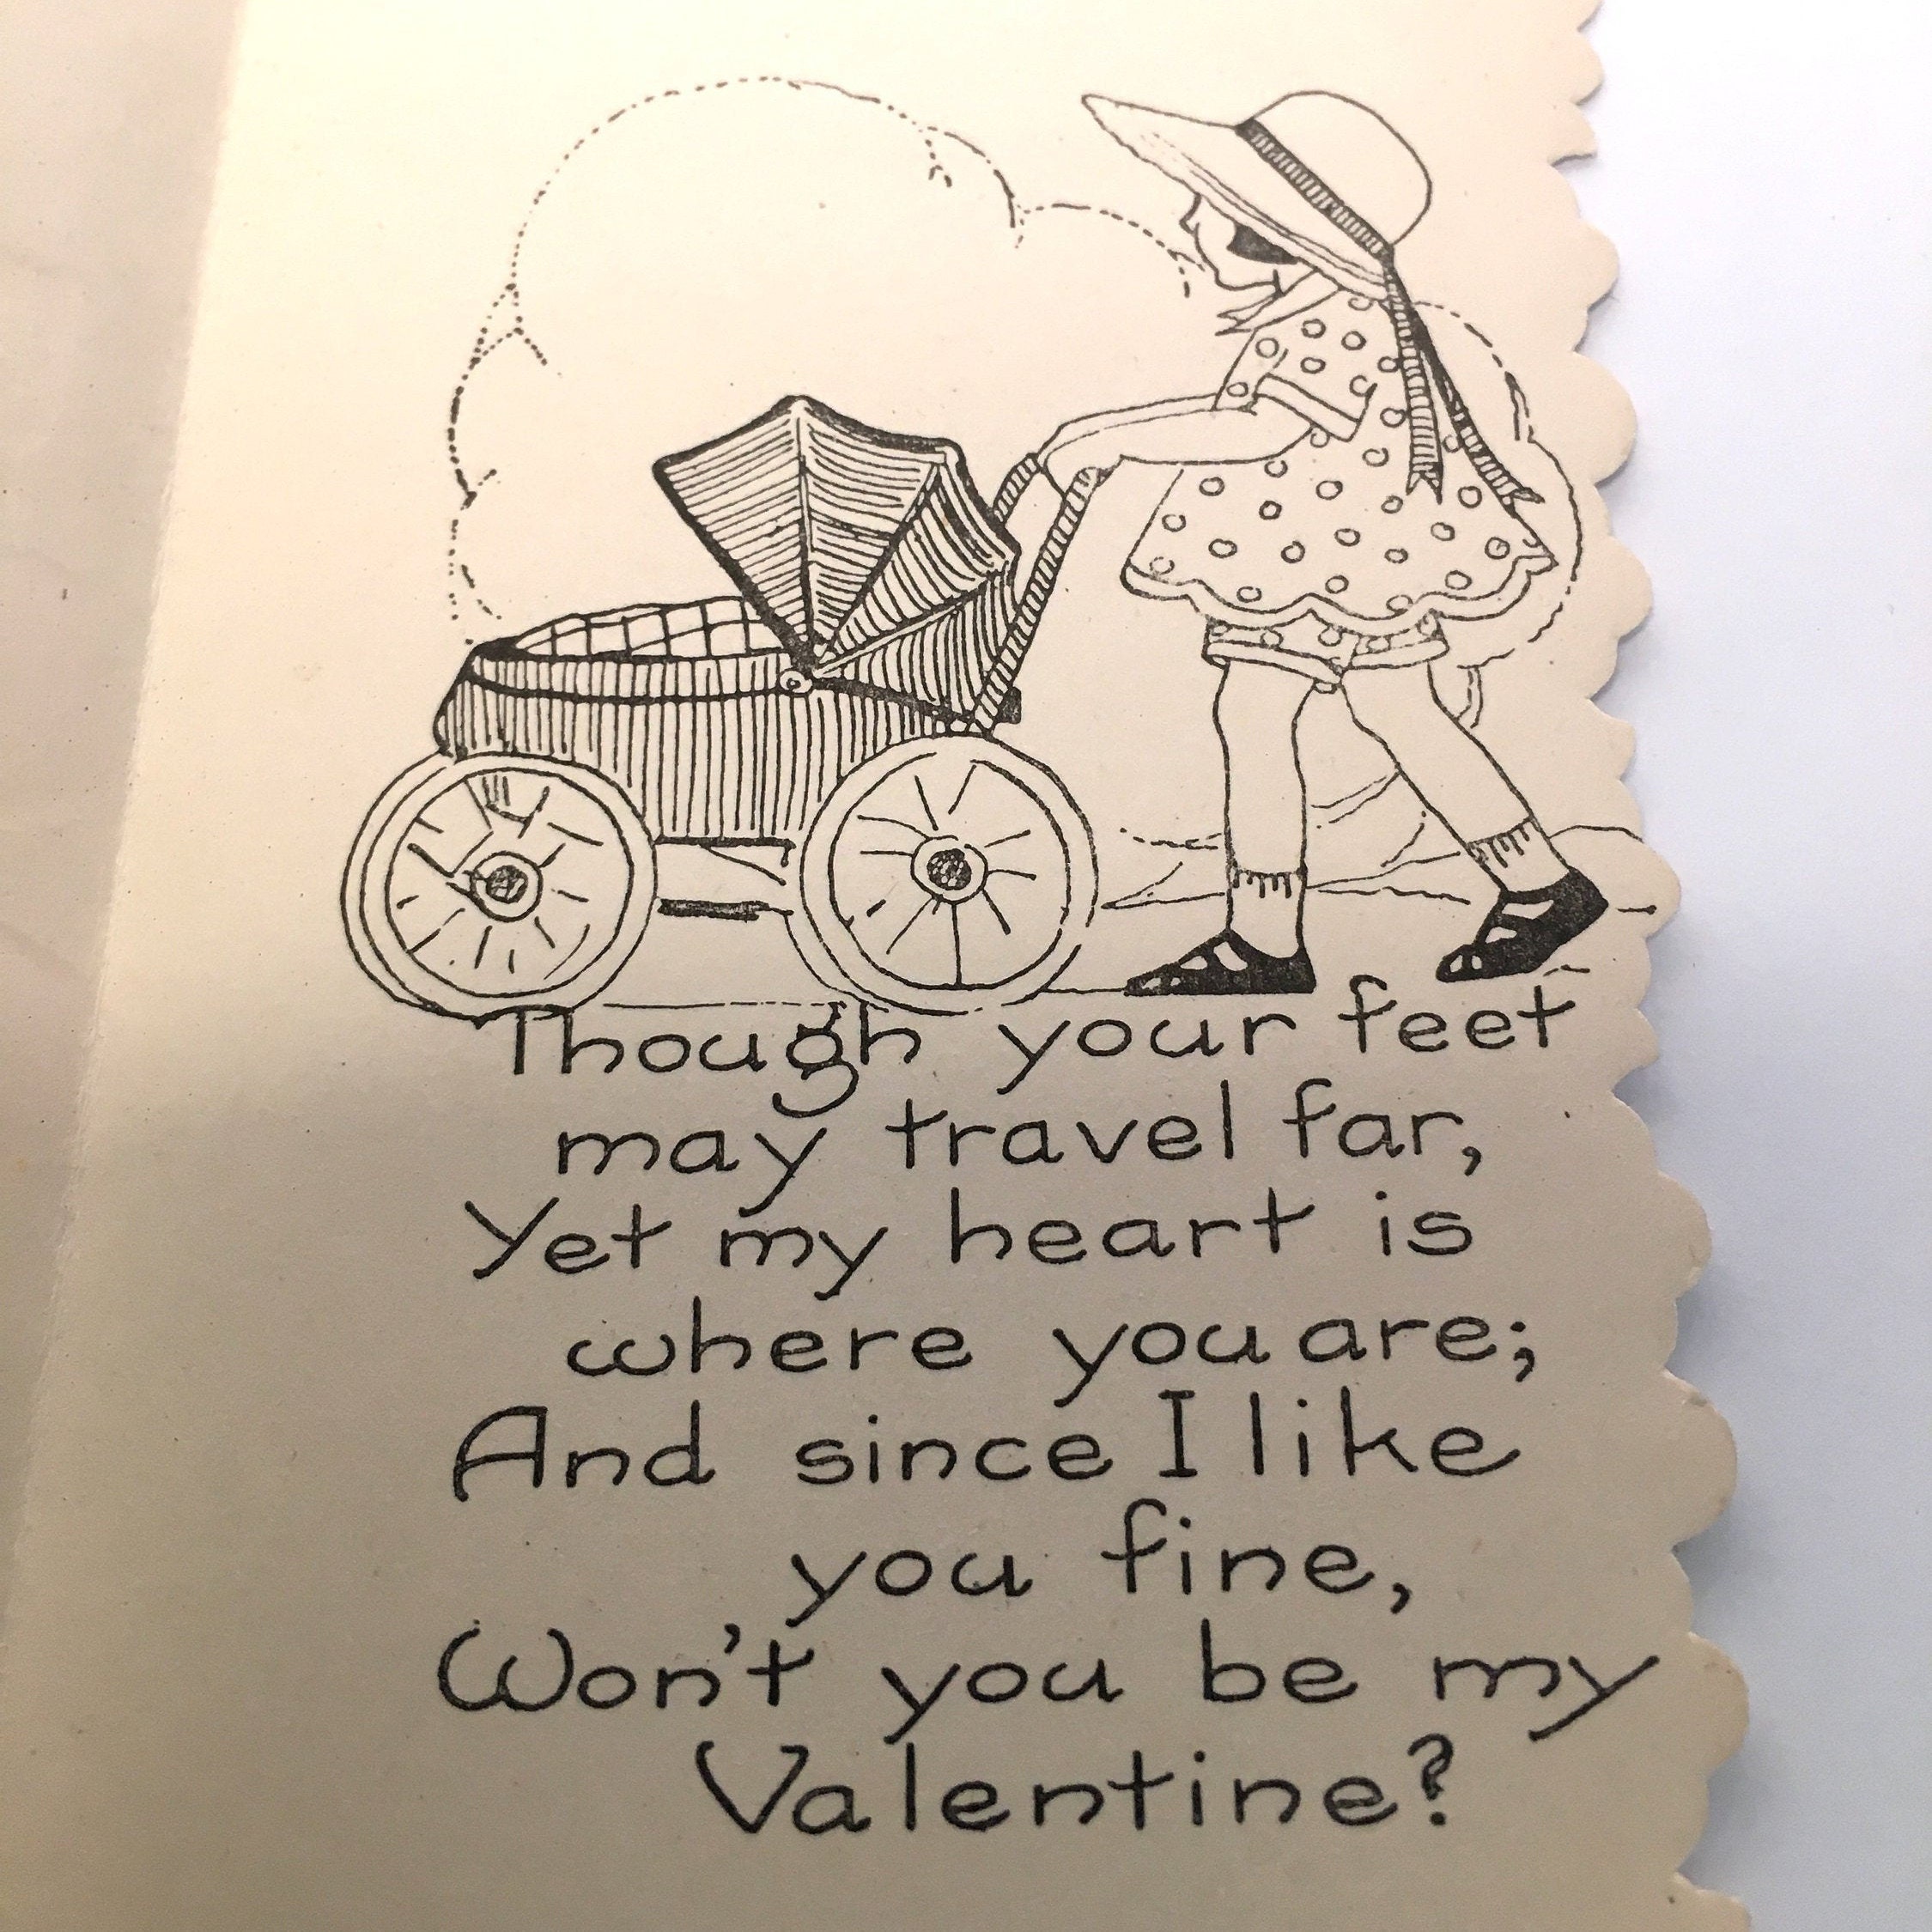 Though your feet
may travel far,
Yet my heart is
where you are;
And since I like
you fine,
Won't you be my
Valentine?